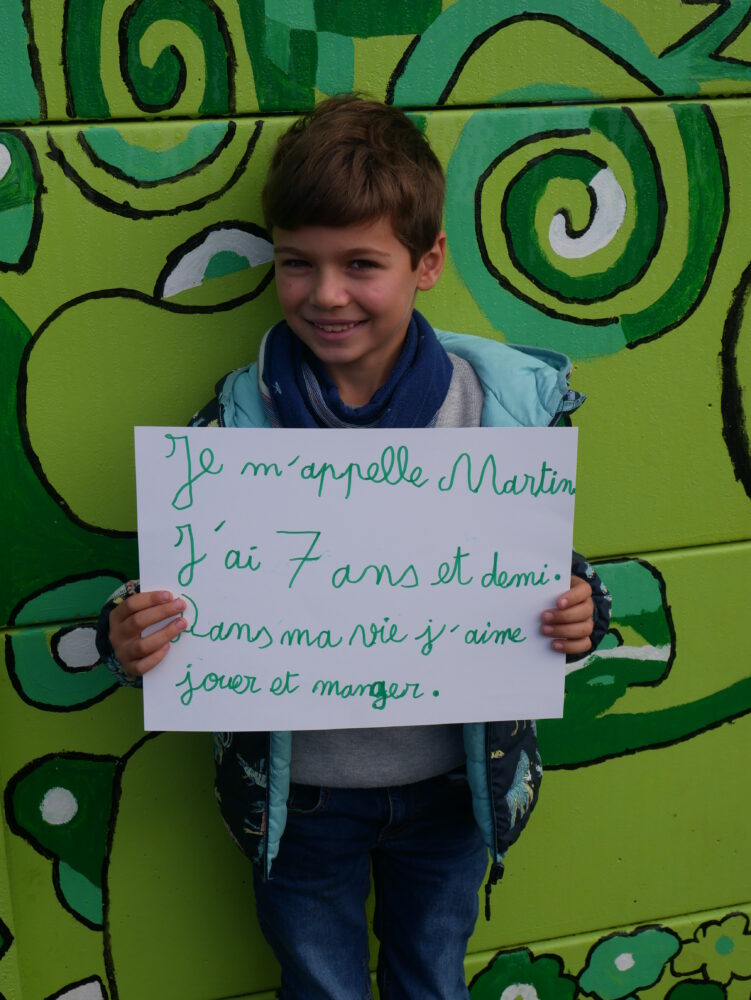 Je m'appelle Martin
J'ai 7 ans et demi.
Dans ma vie j'aime
jouer et manger.